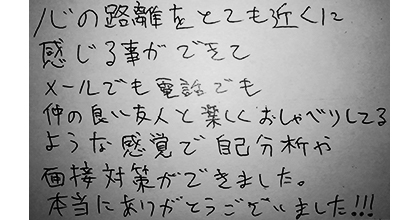 心の路離をとても近くに
感じる事ができて
メールでも電話でも
仲の良い友人と楽しくおしゃべりしてる
ような感覚で自己分析や
面接対策ができました。
本当にありがとうございました!!!